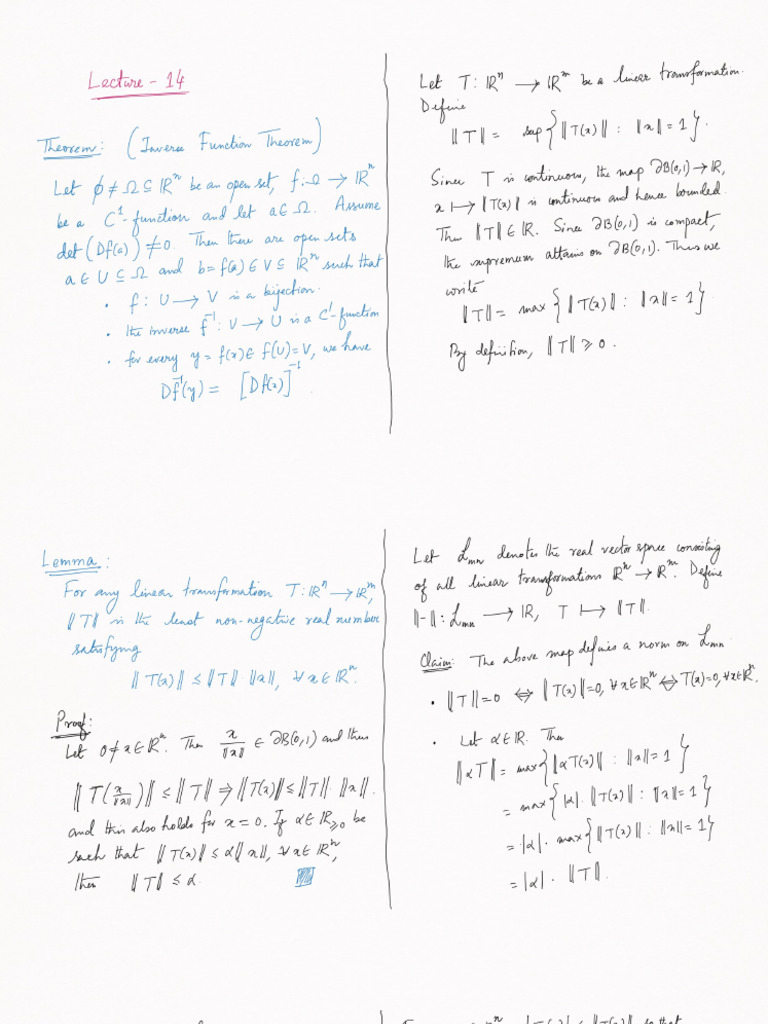 Lecture - 14
Theorem: (Inverse Function Theorem)
Let ϕ ≠ Ω ⊆ ℝⁿ be an open set, f: Ω → ℝⁿ
be a C¹-function and let a ∈ Ω. Assume
det (Df(a)) ≠ 0. Then there are open sets
a ∈ U ⊆ Ω and b = f(a) ∈ V ⊆ ℝⁿ such that
• f: U → V is a bijection.
• the inverse f⁻¹: V → U is a C¹-function
• for every y = f(x) ∈ f(U) = V, we have
Df⁻¹(y) = [Df(x)]⁻¹.
Let T: ℝⁿ → ℝᵐ be a linear transformation.
Define
‖T‖ = sup {‖T(x)‖ : ‖x‖ = 1}.
Since T is continuous, the map ∂B(0,1) → ℝ,
x ↦ ‖T(x)‖ is continuous and hence bounded.
Then ‖T‖ ∈ ℝ. Since ∂B(0,1) is compact,
the supremum attains on ∂B(0,1). Thus we
write
‖T‖ = max {‖T(x)‖ : ‖x‖ = 1}.
By definition, ‖T‖ ⩾ 0.
Lemma:
For any linear transformation T: ℝⁿ → ℝᵐ,
‖T‖ is the least non-negative real number
satisfying
‖T(x)‖ ≤ ‖T‖·‖x‖, ∀ x ∈ ℝⁿ.
Proof:
Let 0 ≠ x ∈ ℝⁿ. Then x/‖x‖ ∈ ∂B(0,1) and thus
‖T(x/‖x‖)‖ ≤ ‖T‖ ⇒ ‖T(x)‖ ≤ ‖T‖·‖x‖.
and this also holds for x = 0. If α ∈ ℝ⩾₀ be
such that ‖T(x)‖ ≤ α‖x‖, ∀ x ∈ ℝⁿ,
then ‖T‖ ≤ α.
Let ℒₘₙ denotes the real vector space consisting
of all linear transformations ℝⁿ → ℝᵐ. Define
‖-‖: ℒₘₙ → ℝ, T ↦ ‖T‖.
Claim: The above map defines a norm on ℒₘₙ.
• ‖T‖ = 0 ⇔ ‖T(x)‖ = 0, ∀ x ∈ ℝⁿ ⇔ T(x) = 0, ∀ x ∈ ℝⁿ.
• Let α ∈ ℝ. Then
‖αT‖ = max {‖αT(x)‖ : ‖x‖ = 1}
= max {|α|·‖T(x)‖ : ‖x‖ = 1}
= |α|· max {‖T(x)‖ : ‖x‖ = 1}
= |α|· ‖T‖.